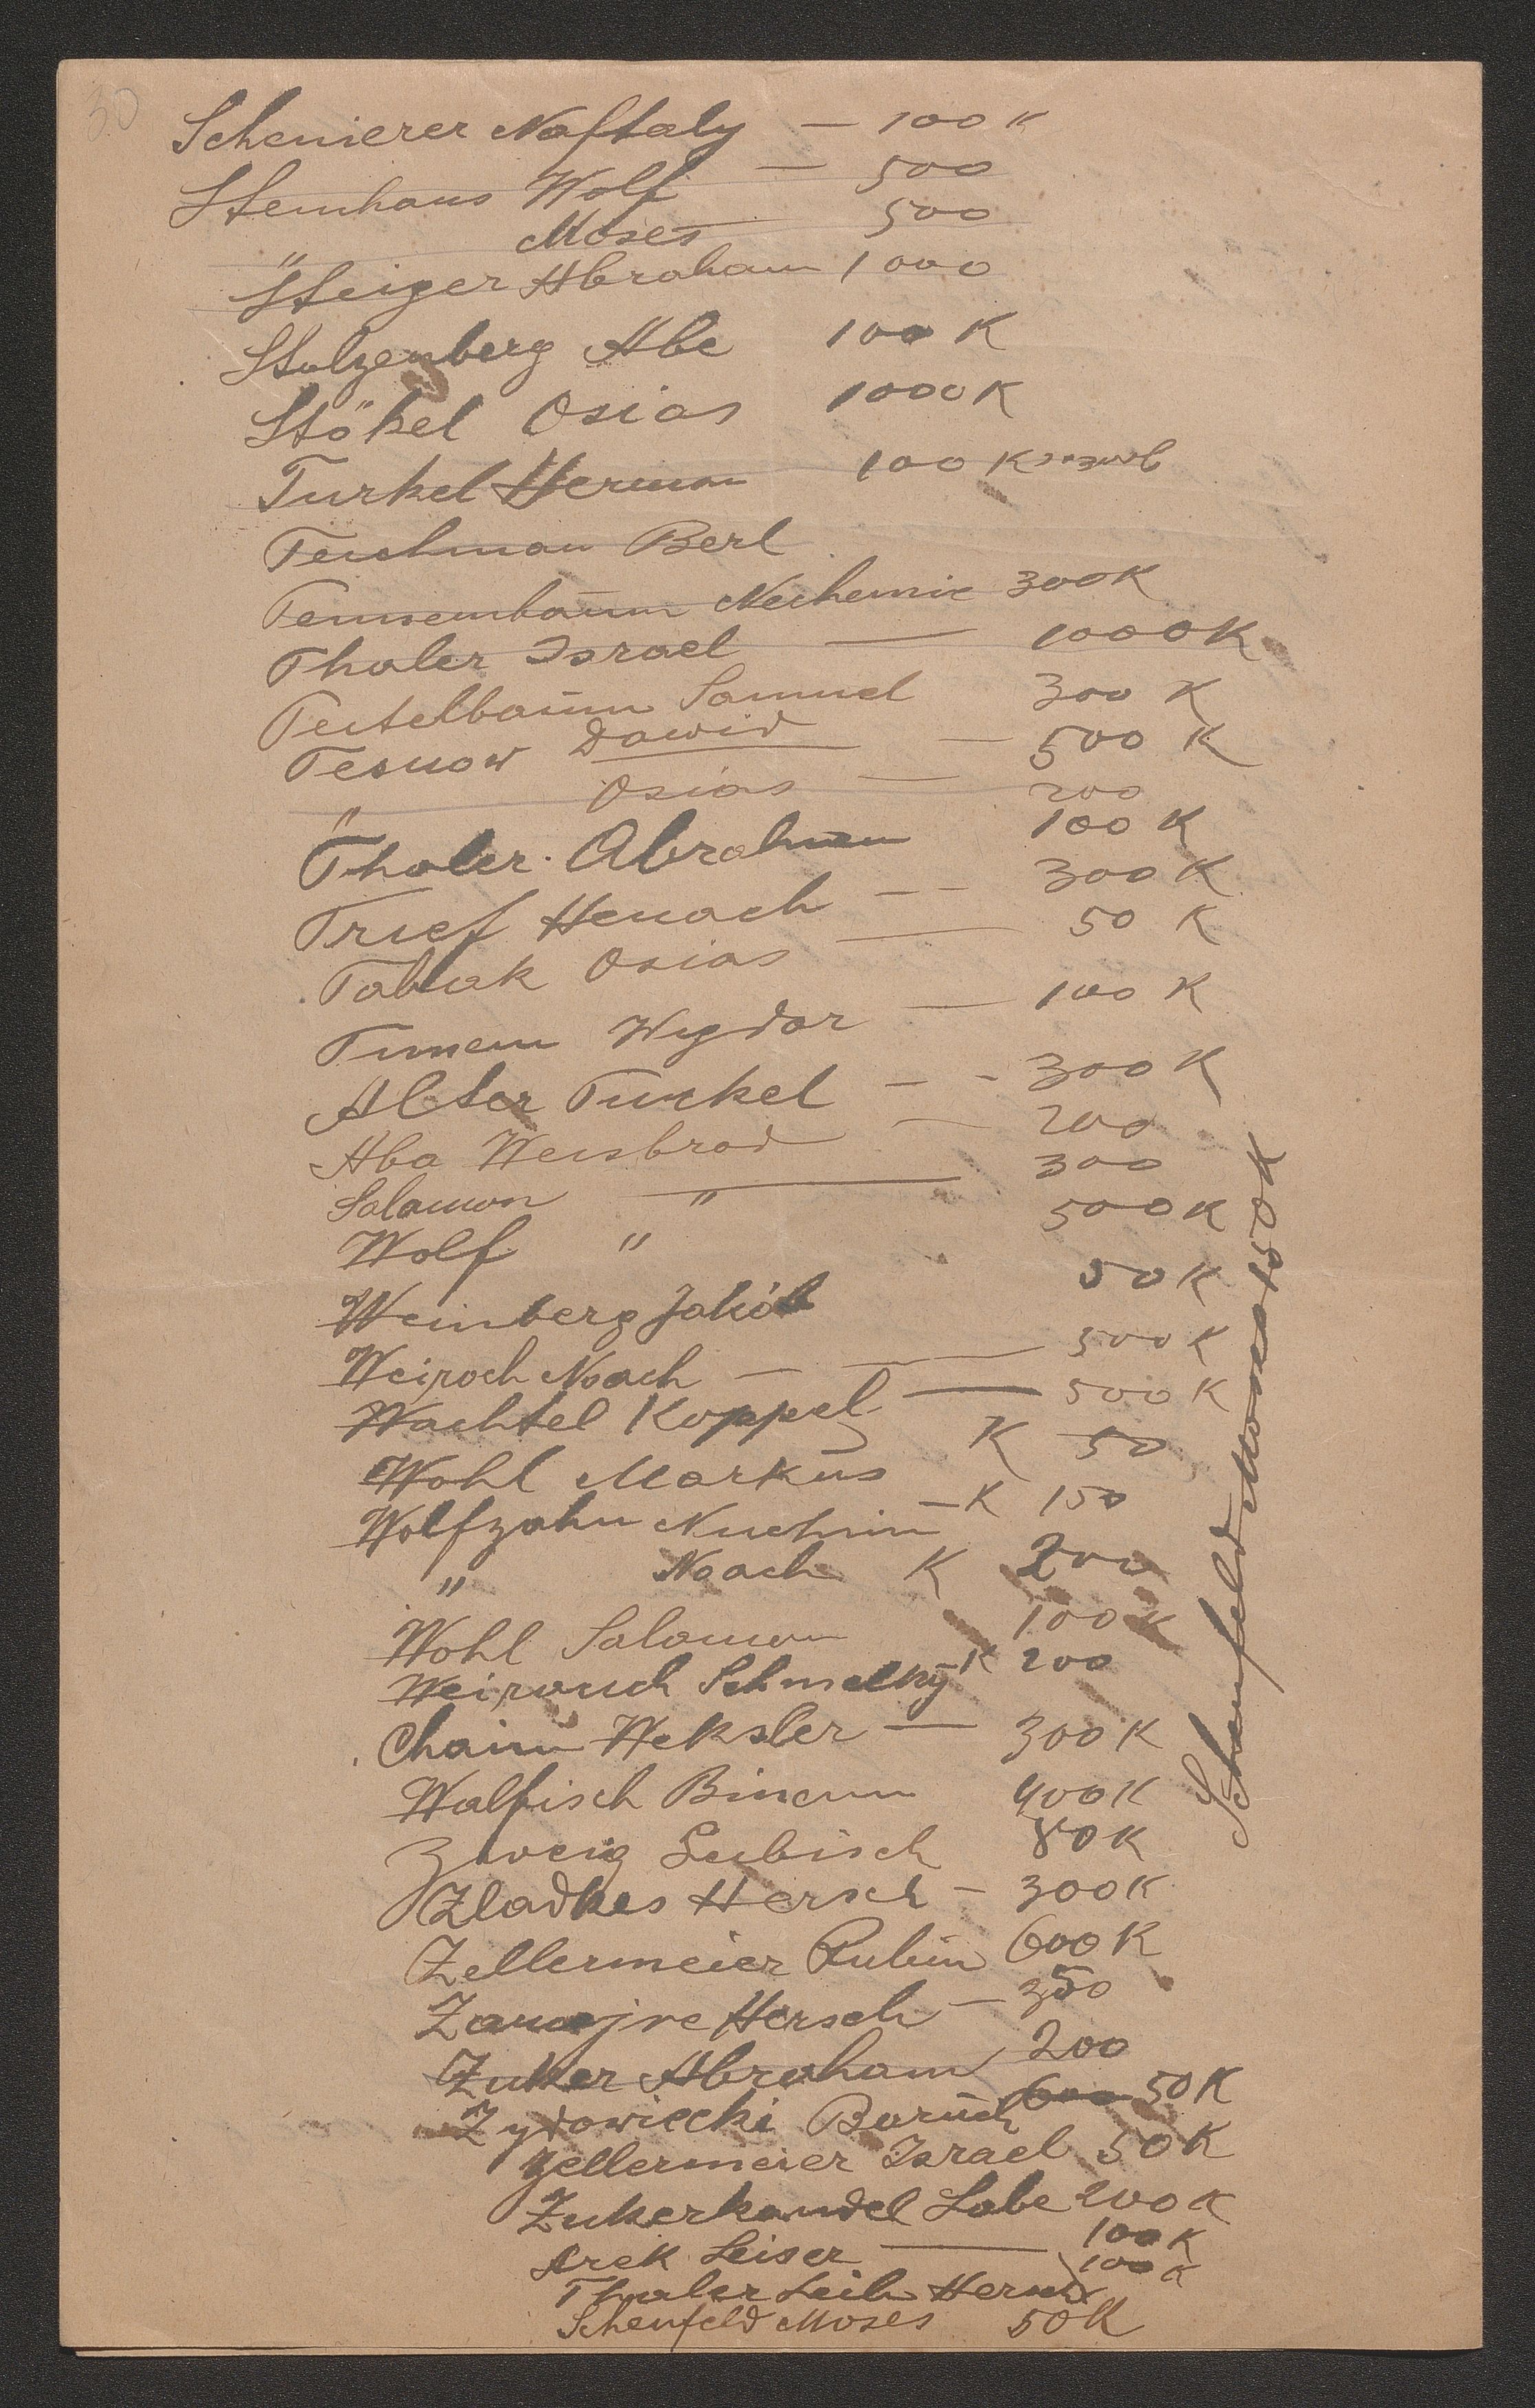 30
Schenierer Naftaly — 100 K
Steinhaus Wolf — 500
" Moses 500
Steiger Abraham 1000
Stolzenberg Abe 100 K
Stökel Osias 1000 K
Turkel Herman 100 K
Teichman Berl
Tennenbaum Nechemie 300 K
Thaler Israel — 1000 K
Teitelbaum Samuel 300 K
Tesnow Dawid — 500 K
" Osias — 200
Thaler Abraham 100 K
Trief Henach -- 300 K
Tabak Osias — 50 K
Wigdor — 100 K
Alter Turkel -- 300 K
Aba Weisbrod — 200
Salamon — " 300
Wolf " 500 K
Weinberg Jakób 50 K
Weiroch Noach — — 500 K
Wachtel Koppel — 500 K
Wohl Markus K 50
Wolfzahn Nuchim — K 150
" Noach K 200
Wohl Salamon 100 K
Weirouch Schmelky K 200
Chaim Weksler — 300 K
Walfisch Binem 400 K
Zweig Leibisch 80 K
Zladkes Hersch — 300 K
Zellermeier Rubin 600 K
Hersch — 350
Zuker Abraham 200
Zydowiecki Baruch 600 50 K
Zellermeier Israel 50 K
Zukerkandel Labe 200 K
Arek Leiser — 100 K
Thaler Leib Hersch 100 K
Schenfeld Moses 50 K
Schenfeld Moses 50 K